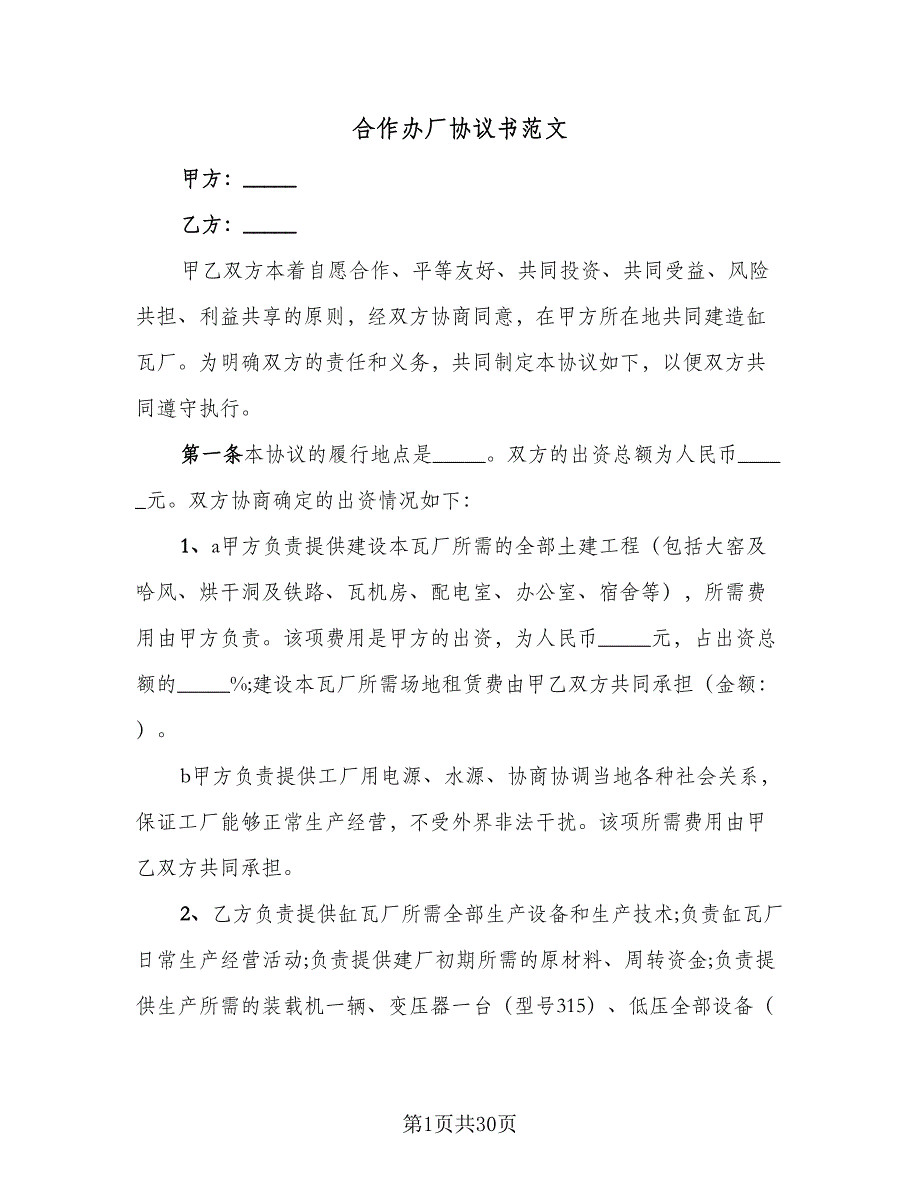 合作办厂协议书范文
甲方：_____
乙方：_____
甲乙双方本着自愿合作、平等友好、共同投资、共同受益、风险
共担、利益共享的原则，经双方协商同意，在甲方所在地共同建造缸
瓦厂。为明确双方的责任和义务，共同制定本协议如下，以便双方共
同遵守执行。
第一条本协议的履行地点是_____。双方的出资总额为人民币____
_元。双方协商确定的出资情况如下：
1、a甲方负责提供建设本瓦厂所需的全部土建工程（包括大窑及
哈风、烘干洞及铁路、瓦机房、配电室、办公室、宿舍等），所需费
用由甲方负责。该项费用是甲方的出资，为人民币_____元，占出资总
额的_____%;建设本瓦厂所需场地租赁费由甲乙双方共同承担（金额：
）。
b甲方负责提供工厂用电源、水源、协商协调当地各种社会关系，
保证工厂能够正常生产经营，不受外界非法干扰。该项所需费用由甲
乙双方共同承担。
2、乙方负责提供缸瓦厂所需全部生产设备和生产技术;负责缸瓦厂
日常生产经营活动;负责提供建厂初期所需的原材料、周转资金;负责提
供生产所需的装载机一辆、变压器一台（型号315）、低压全部设备（
第1页共30页